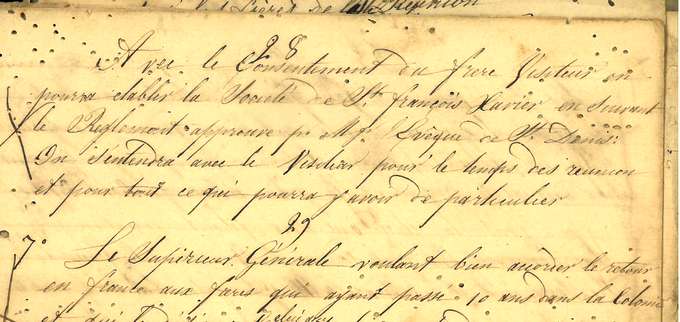 Frères de la Réunion
28
Avec le Consentement du frere Visiteur on
pourra établir la Société de St. françois Xavier en suivant
le Réglement approuvé pr. Mgr. Evêque de St. Denis.
On s'entendra avec le Visiteur pour le temps des reunion
et pour tout ce qui pourra y avoir de particulier
29
Le Supérieur Générale voulant bien accorder le retour
en france aux fares qui ayant passé 10 ans dans la Colonie
et qui